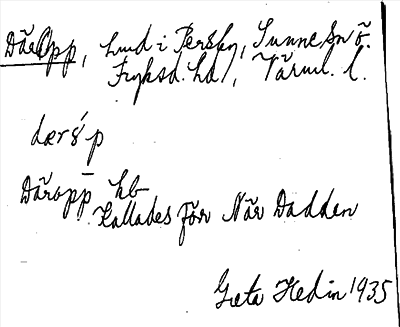 DärOpp, hmd i Persby, Sunne sn ö.
Fryksd. hd, Värml. l.
dærǿp
Däropp hb
Kallades för När Dadden
Greta Hedin 1935